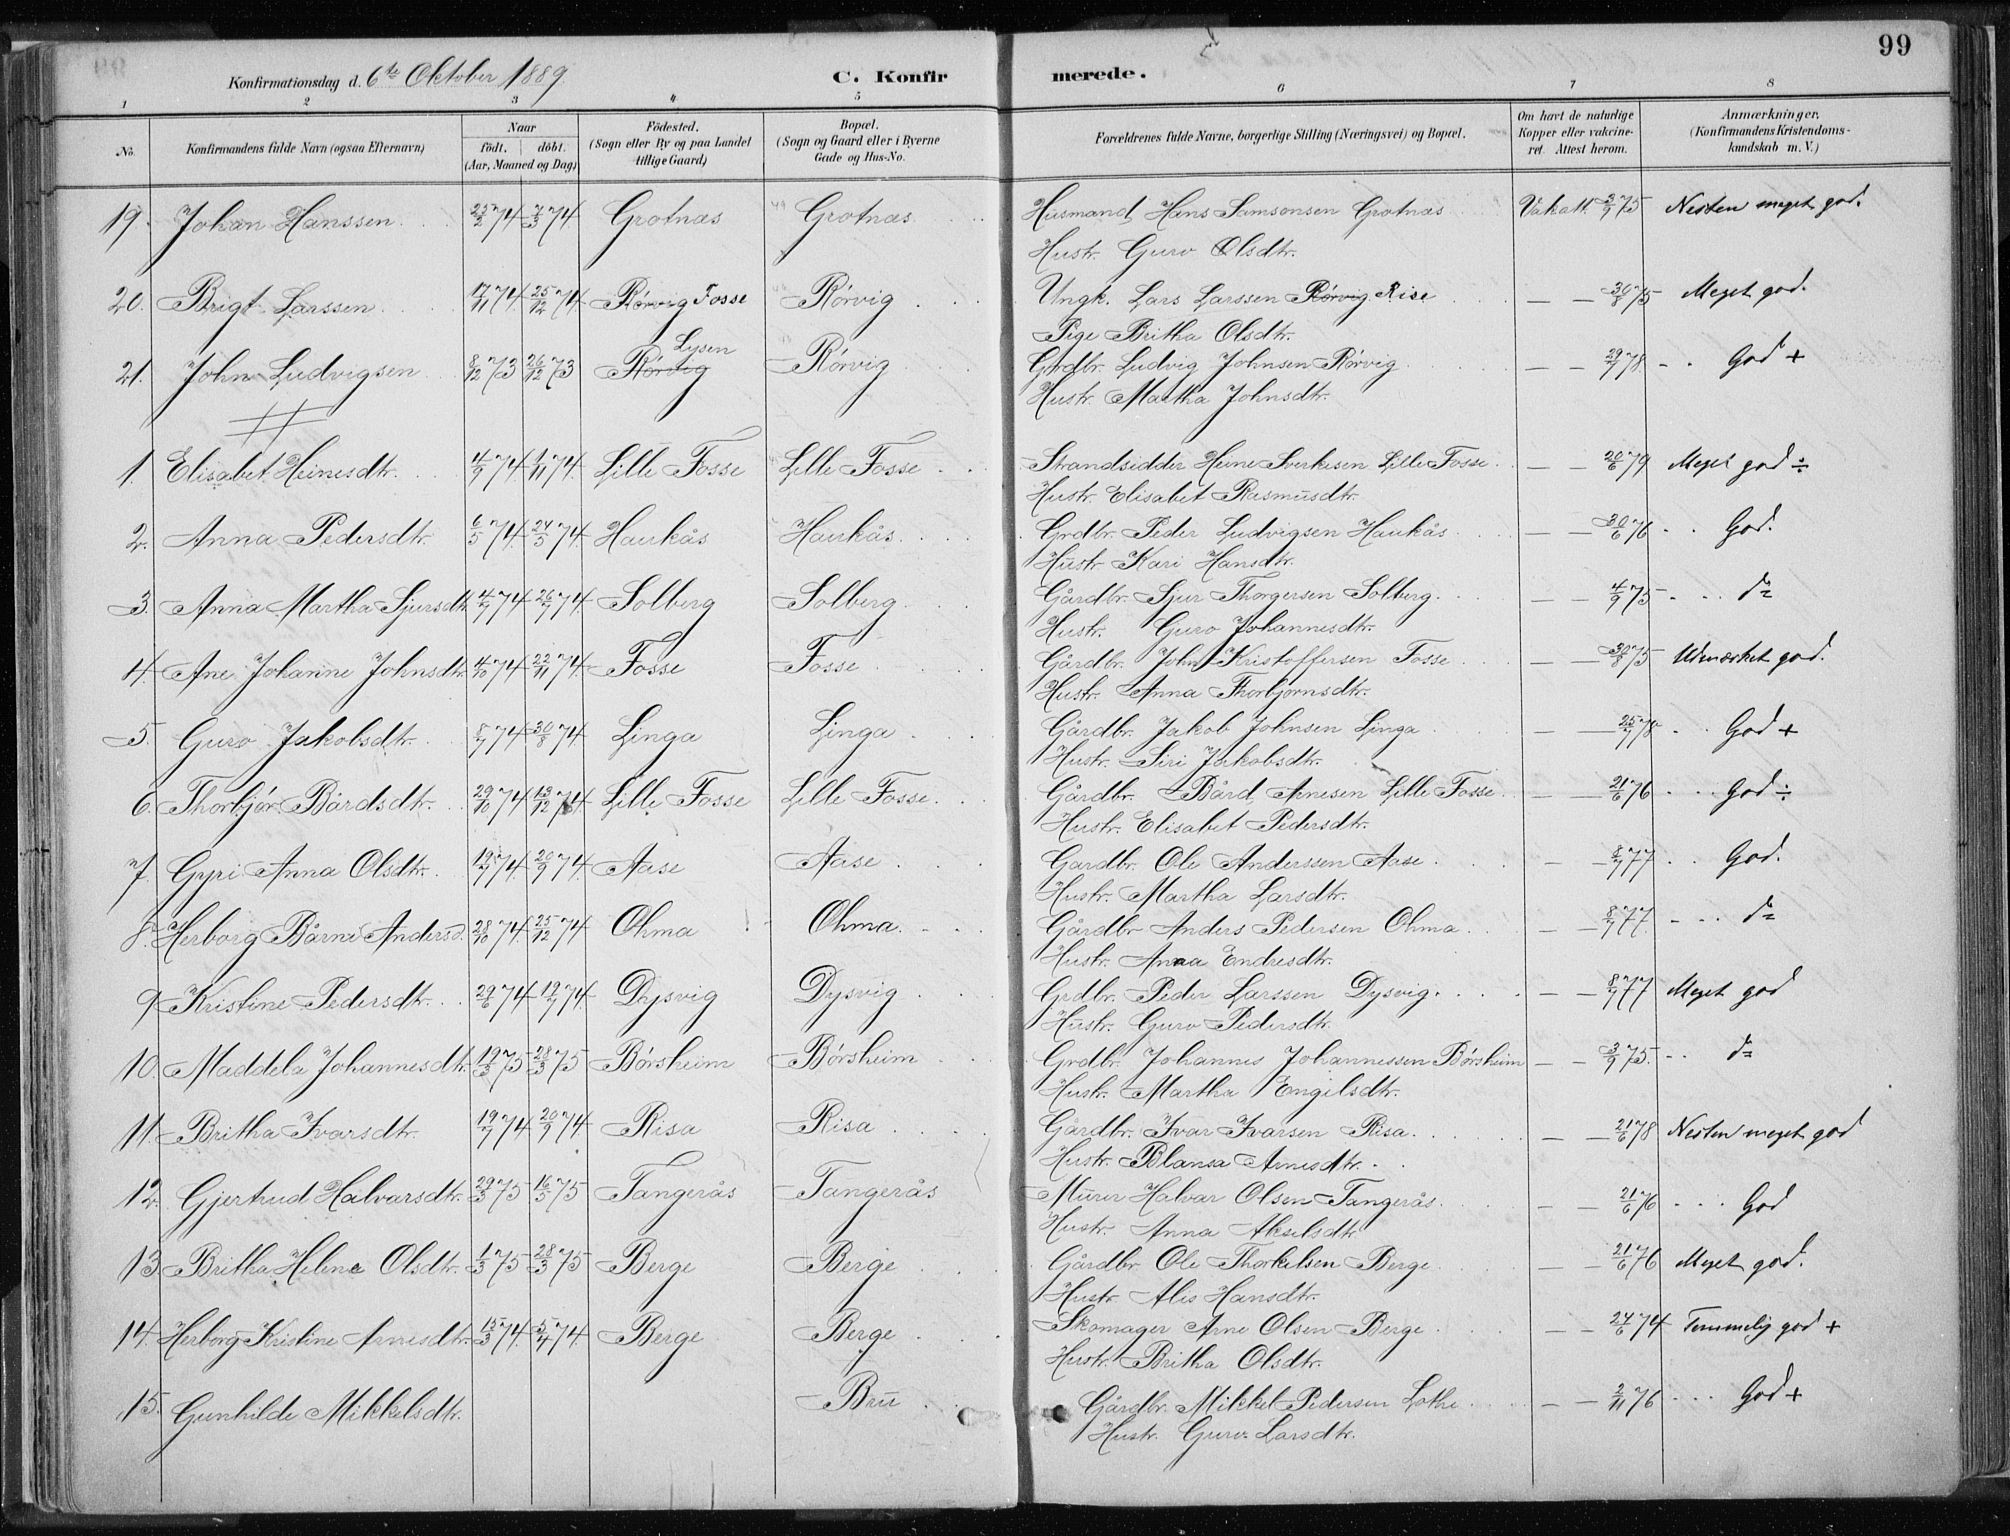 99
Konfirmationsdag d. 6te Oktober 1889. C. Konfirmerede.
1 2 3 4 5 6 7 8
No. Konfirmandens fulde Navn (ogsaa Efternavn) Naar født, døbt. (Aar, Maaned og Dag) Fødested. (Sogn eller By og paa Landet tillige Gaard) Bopæl. (Sogn og Gaard eller i Byerne Gade og Hus-No. Forældrenes fulde Navne, borgerlige Stilling (Næringsvei) og Bopæl. Om havt de naturlige Kopper eller vakcineret. Attest herom. Anmærkninger, (Konfirmandens Kristendomskundskab m. V.)
19. Johan Hanssen 25/2 74 7/3 74 Grotnæs Grotnæs Husmand Hans Samsonsen Grotnæs Vakatt. 3/9 75 Nesten meget god.
Hustr. Guro Olsdtr.
20. Brigt Larssen 17/11 74 25/12 74 Rørvig Fosse Rørvig Ungk. Lars Larssen Rørvig Rise — — 30/8 75 Meget god.
Pige Britha Olsdtr.
21. John Ludvigsen 8/12 73 26/12 73 Rørvig Lysen Rørvig Grdbr. Ludvig Johnsen Rørvig — — 29/7 78 - . God +
Hustr. Martha Johnsdtr.
1. Elisabet Heinesdtr. 4/9 74 1/11 74 Lille Fosse Lille Fosse Strandsidder Heine Sverkesen Lille Fosse — — 20/6 79 Meget god ÷
Hustr. Elisabet Rasmusdtr.
2. Anna Pedersdtr. 6/5 74 24/5 74 Haukås Haukås Grdbr. Peder Ludvigsen Haukås — — 30/6 76 . . God.
Hustr Kari Hansdtr.
3. Anna Martha Sjursdtr. 4/7 74 26/7 74 Solberg Solberg Gårdbr. Sjur Thorgersen Solberg — — 4/9 75 . . . do
Hustr. Guro Johannesdtr.
4. Ane Johanne Johnsdtr. 4/10 74 22/11 74 Fosse Fosse Gårdbr. John Kristoffersen Fosse — — 30/8 75 Udmærket god.
Hustr. Anna Thorbjørnsdtr.
5. Guro Jakobsdtr. 8/7 74 30/8 74 Linga Linga Gårdbr. Jakob Johnsen Linga — — 25/7 78 . . God +
Hustr. Siri Jakobsdtr.
6. Thorbjør Bårdsdtr. 29/10 74 13/12 74 Lille Fosse Lille Fosse Gårdbr. Bård Arnesen Lille Fosse — — 21/6 76 . . . God ÷
Hustr. Elisabet Pedersdtr.
7. Gyri Anna Olsdtr. 74 20/9 74 Aase Aase Gardbr. Ole Anderssen Aase — — 8/7 77 . . God.
Hustr. Martha Larsdtr.
8. Herborg Bårne Andersd. 28/10 74 25/12 74 Ohma Ohma Gårdbr Anders Pedersen Ohma — — 8/7 77 - . . do
Hustr. Anna Endresdtr.
9 Kristine Pedersdtr. 29/6 74 19/7 74 Dysvig Dysvig Grdbr. Peder Larssen Dysvig — — 8/7 77 Meget god
Hustr. Guro Pedersdtr.
10. Maddela Johannesdtr. 19/3 75 28/3 75 Børsheim Børsheim Grdbr. Johannes Johannessen Børsheim — — 3/9 75 . . do
Hustr. Martha Engelsdtr.
11. Britha Ivarsdtr. 19/7 74 20/9 74 Risa Risa Gårdbr. Ivar Ivarsen Risa — — 21/6 78 Nesten meget god
Hustr. Blansa Arnesdtr.
12. Gjertrud Halvarsdtr. 29/3 75 16/5 75 Tangerås Tangerås Murer Halvar Olsen Tangerås — — 21/6 76 . . . God
Hustr. Anna Akselsdtr
13 Britha Helene Olsdtr. 1/3 75 28/3 75 Berge Berge Gårdbr Ole Thorkelsen Berge — — 21/6 76 Meget god.
Hustr. Alis Hansdtr.
14. Herborg Kristine Arnesdtr. 15/3 74 5/4 74 Berge Berge Skomager Arne Olsen Berge — — 27/6 74 Temmelig god +
Hustr. Britha Olsdtr.
15. Gunhilde Mikkelsdtr. Bru Gårdbr. Mikkel Pedersen Lothe — — 2/11 76 . . . God +
Hustr. Guro Larsdtr.